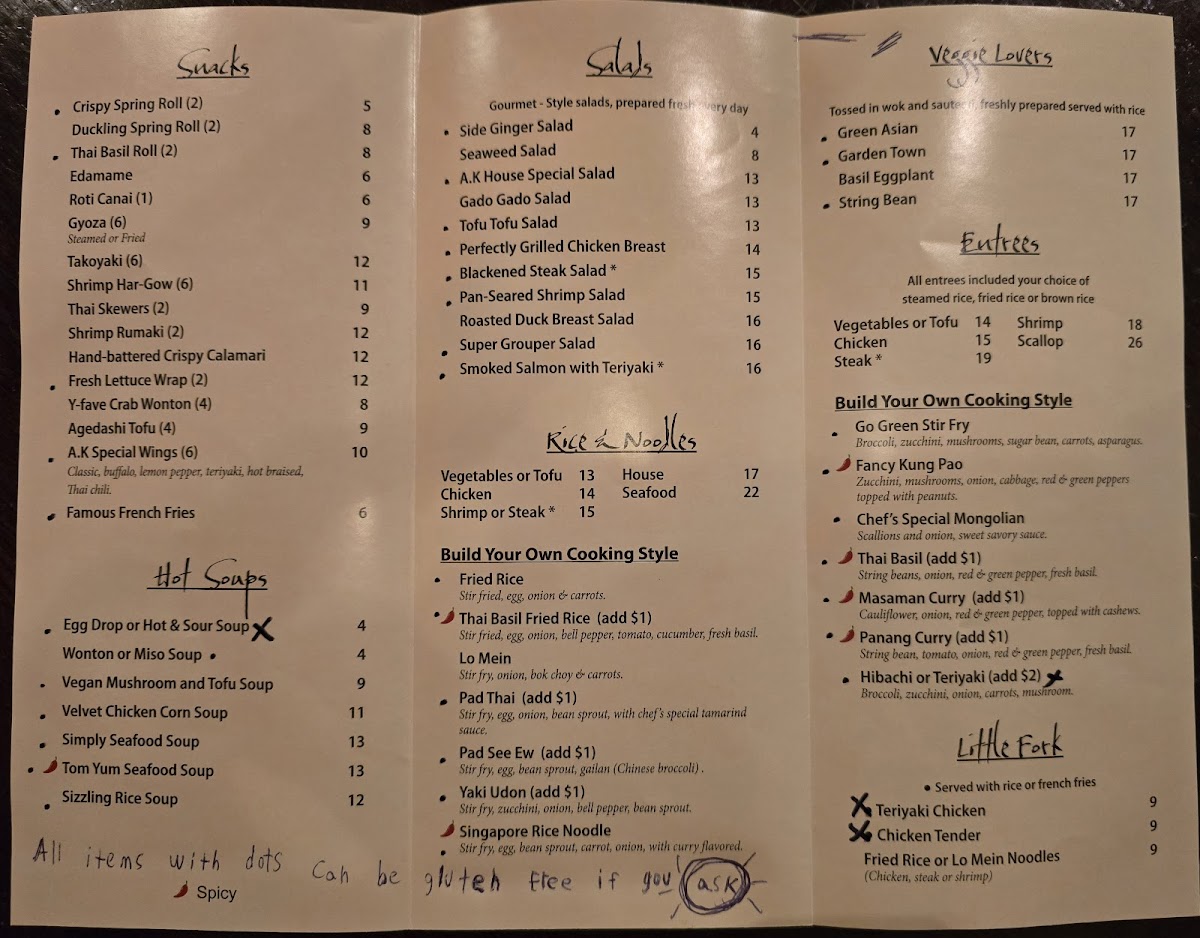 Snacks
• Crispy Spring Roll (2) 5
Duckling Spring Roll (2) 8
• Thai Basil Roll (2) 8
Edamame 6
Roti Canai (1) 6
Gyoza (6) 9
Steamed or Fried
Takoyaki (6) 12
Shrimp Har-Gow (6) 11
Thai Skewers (2) 9
Shrimp Rumaki (2) 12
Hand-battered Crispy Calamari 12
• Fresh Lettuce Wrap (2) 12
Y-fave Crab Wonton (4) 8
Agedashi Tofu (4) 9
• A.K Special Wings (6) 10
Classic, buffalo, lemon pepper, teriyaki, hot braised,
Thai chili.
• Famous French Fries 6
Hot Soups
• Egg Drop or Hot & Sour Soup X 4
Wonton or Miso Soup • 4
• Vegan Mushroom and Tofu Soup 9
• Velvet Chicken Corn Soup 11
• Simply Seafood Soup 13
• Tom Yum Seafood Soup 13
• Sizzling Rice Soup 12
Salads
Gourmet - Style salads, prepared fresh every day
• Side Ginger Salad 4
Seaweed Salad 8
• A.K House Special Salad 13
Gado Gado Salad 13
• Tofu Tofu Salad 13
• Perfectly Grilled Chicken Breast 14
• Blackened Steak Salad * 15
• Pan-Seared Shrimp Salad 15
Roasted Duck Breast Salad 16
• Super Grouper Salad 16
• Smoked Salmon with Teriyaki * 16
Rice & Noodles
Vegetables or Tofu 13 House 17
Chicken 14 Seafood 22
Shrimp or Steak * 15
Build Your Own Cooking Style
• Fried Rice
Stir fried, egg, onion & carrots.
• Thai Basil Fried Rice (add $1)
Stir fried, egg, onion, bell pepper, tomato, cucumber, fresh basil.
Lo Mein
Stir fry, onion, bok choy & carrots.
• Pad Thai (add $1)
Stir fry, egg, onion, bean sprout, with chef's special tamarind
sauce.
• Pad See Ew (add $1)
Stir fry, egg, bean sprout, gailan (Chinese broccoli) .
• Yaki Udon (add $1)
Stir fry, zucchini, onion, bell pepper, bean sprout.
• Singapore Rice Noodle
Stir fry, egg, bean sprout, carrot, onion, with curry flavored.
Veggie Lovers
Tossed in wok and sauteed, freshly prepared served with rice
• Green Asian 17
• Garden Town 17
Basil Eggplant 17
• String Bean 17
Entrees
All entrees included your choice of
steamed rice, fried rice or brown rice
Vegetables or Tofu 14 Shrimp 18
Chicken 15 Scallop 26
Steak * 19
Build Your Own Cooking Style
• Go Green Stir Fry
Broccoli, zucchini, mushrooms, sugar bean, carrots, asparagus.
• Fancy Kung Pao
Zucchini, mushrooms, onion, cabbage, red & green peppers
topped with peanuts.
• Chef's Special Mongolian
Scallions and onion, sweet savory sauce.
• Thai Basil (add $1)
String beans, onion, red & green pepper, fresh basil.
• Masaman Curry (add $1)
Cauliflower, onion, red & green pepper, topped with cashews.
• Panang Curry (add $1)
String bean, tomato, onion, red & green pepper, fresh basil.
• Hibachi or Teriyaki (add $2) X
Broccoli, zucchini, onion, carrots, mushroom.
Little Fork
• Served with rice or french fries
X Teriyaki Chicken 9
X Chicken Tender 9
Fried Rice or Lo Mein Noodles 9
(Chicken, steak or shrimp)
All items with dots can be gluten free if you ask
Spicy